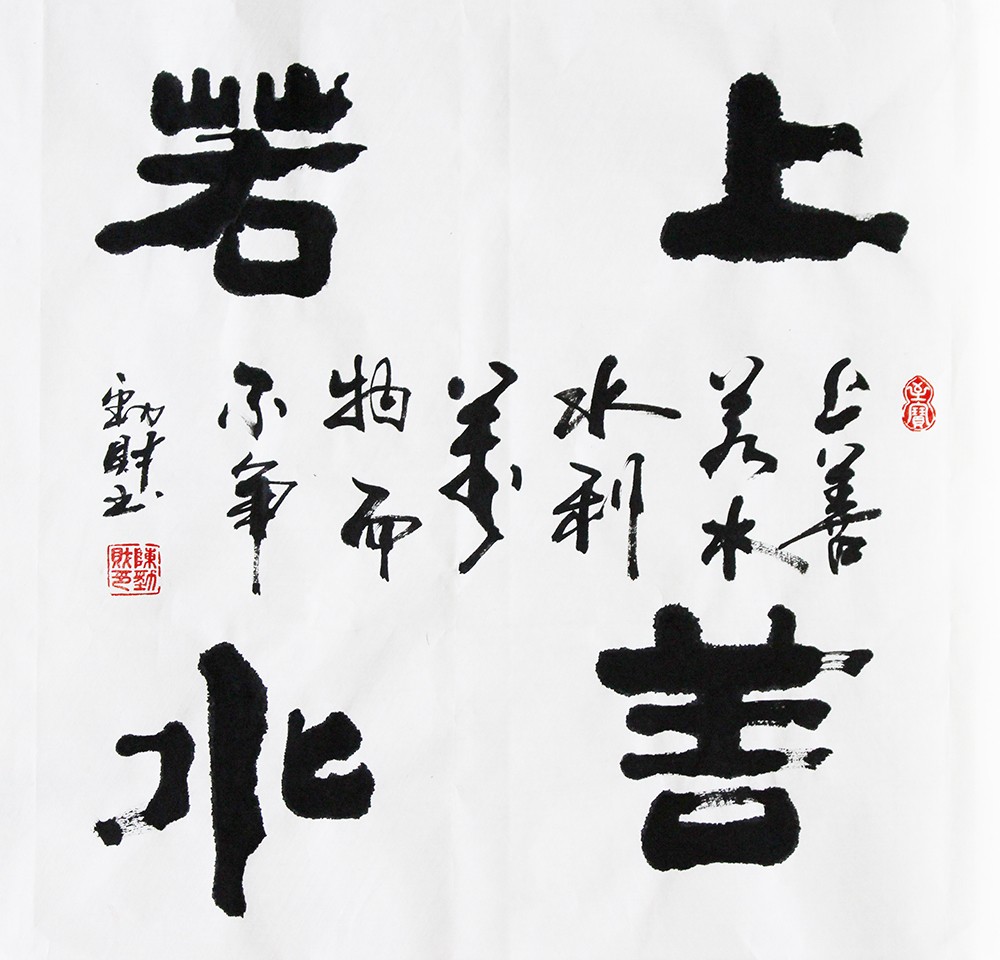 上善
若水
上善
若水
水利
萬
物而
不争
勁財书
陳勁
財印